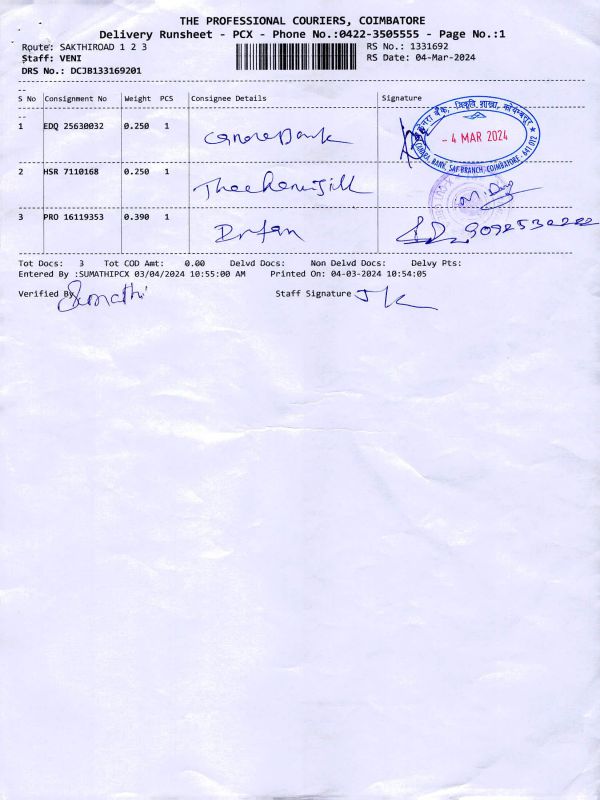 THE PROFESSIONAL COURIERS, COIMBATORE
Delivery Runsheet - PCX - Phone No.:0422-3505555 - Page No.:1
Route: SAKTHIROAD 1 2 3
RS No.: 1331692
Staff: VENI
RS Date: 04-Mar-2024
DRS No.: DCJB133169201
S No Consignment No Weight PCS Consignee Details Signature
1 EDQ 25630032 0.250 1 Canara Bank
केनरा बैंक, शाखा, कोयम्बत्तूर
- 4 MAR 2024
CANARA BANK, BRANCH, COIMBATORE - 641 012
2 HSR 7110168 0.250 1
3 PRO 16119353 0.390 1 Irfan
Tot Docs: 3 Tot COD Amt: 0.00 Delvd Docs: Non Delvd Docs: Delvy Pts:
Entered By :SUMATHIPCX 03/04/2024 10:55:00 AM Printed On: 04-03-2024 10:54:05
Verified By Sumathi Staff Signature